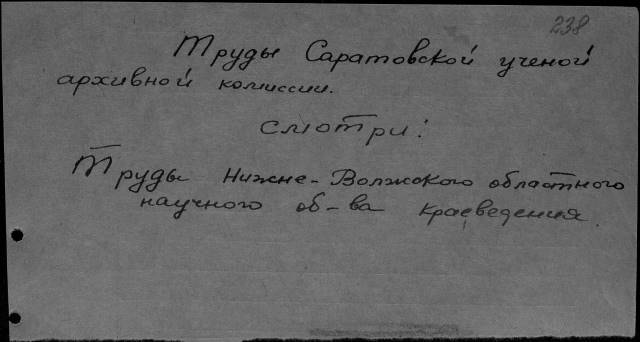 238
Труды Саратовской ученой
архивной комиссии.
смотри:
Труды Нижне-Волжского областного
научного об-ва краеведения